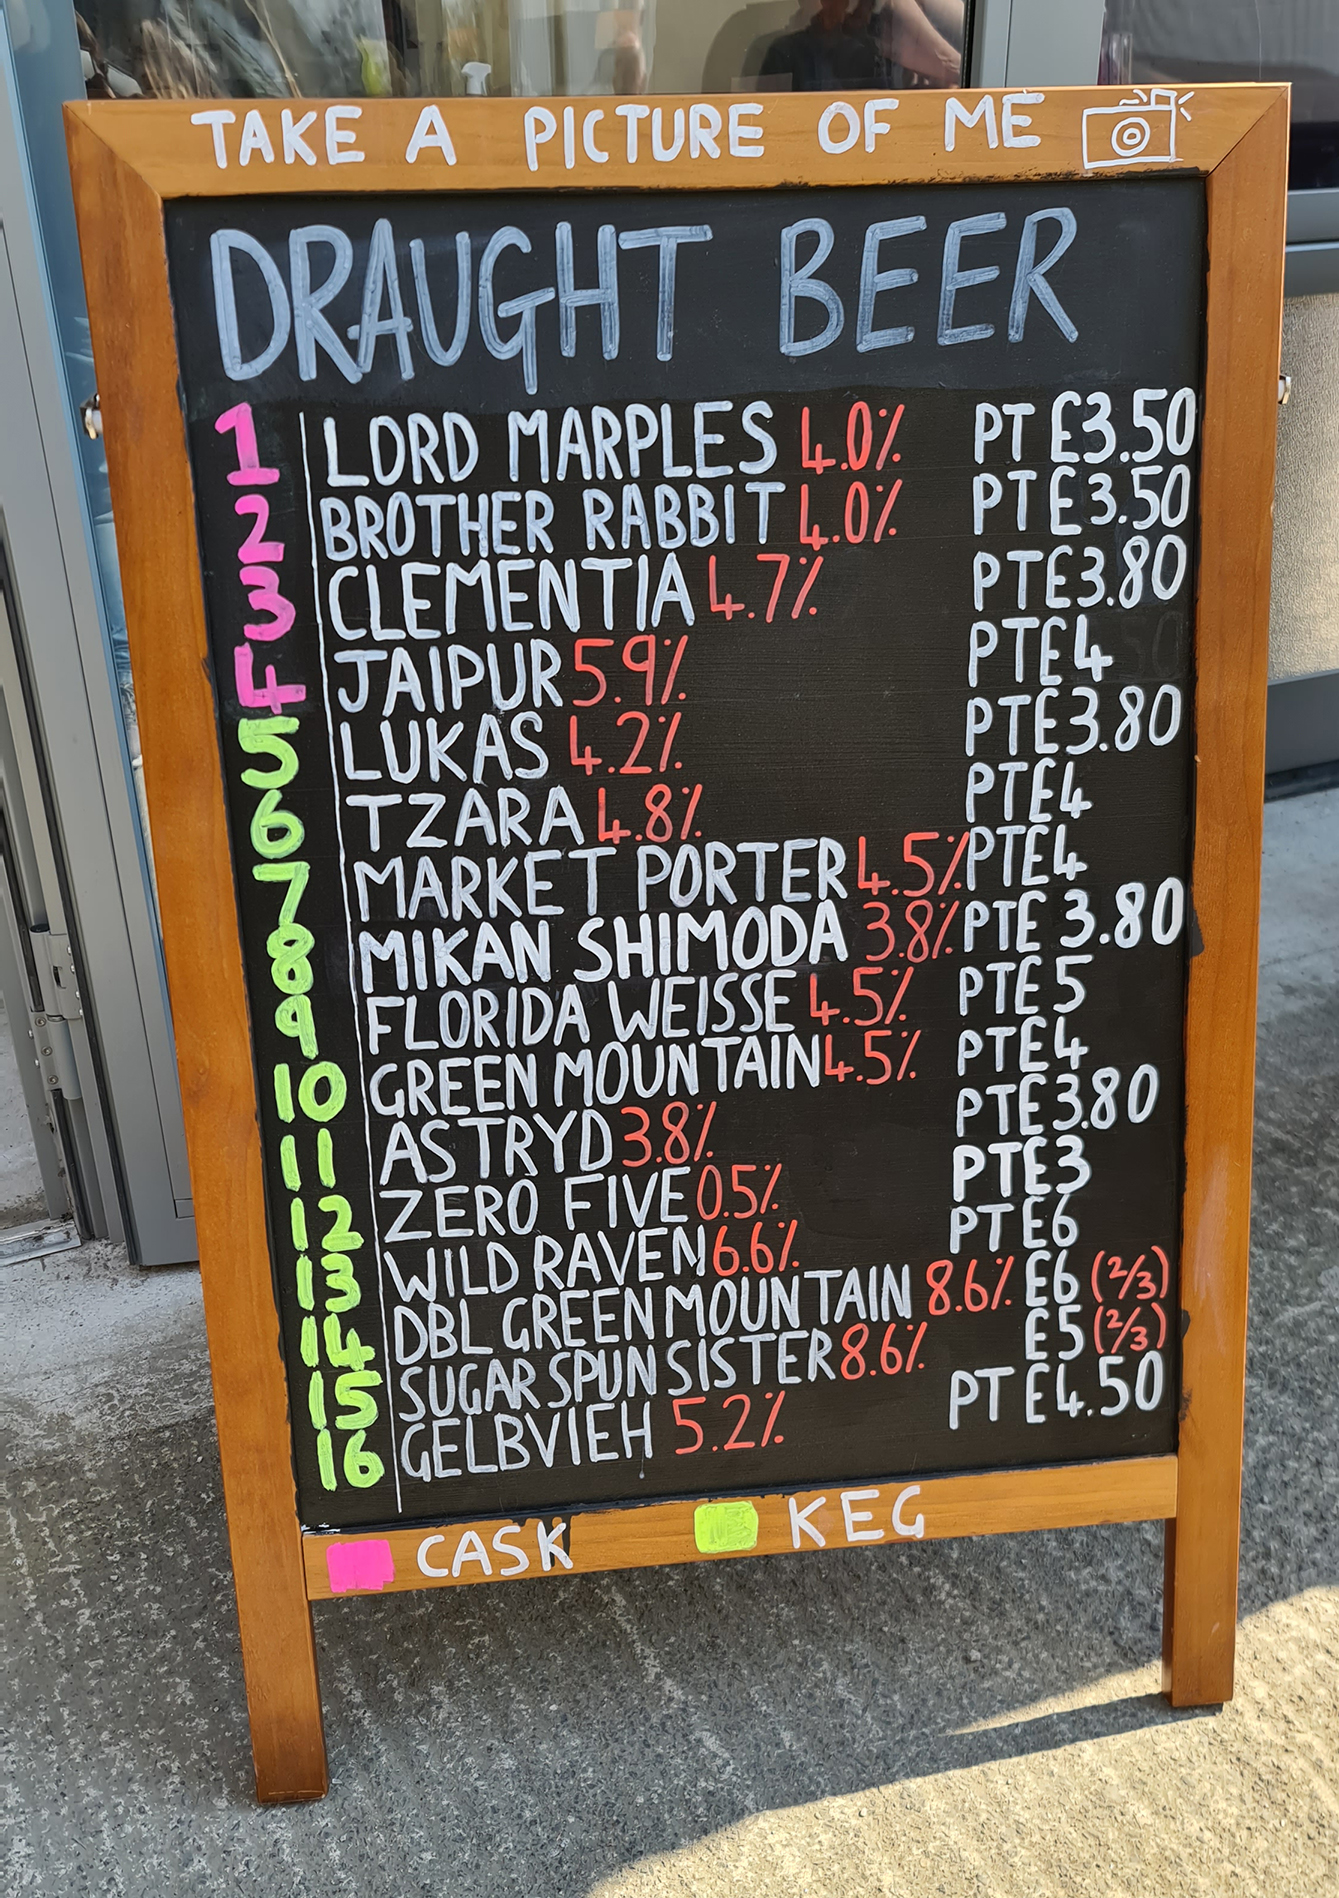 TAKE A PICTURE OF ME
DRAUGHT BEER
1 LORD MARPLES 4.0% PT £3.50
2 BROTHER RABBIT 4.0% PT £3.50
3 CLEMENTIA 4.7% PT £3.80
4 JAIPUR 5.9% PT £4
5 LUKAS 4.2% PT £3.80
6 TZARA 4.8% PT £4
7 MARKET PORTER 4.5% PT £4
8 MIKAN SHIMODA 3.8% PT £3.80
9 FLORIDA WEISSE 4.5% PT £5
10 GREEN MOUNTAIN 4.5% PT £4
11 ASTRYD 3.8% PT £3.80
12 ZERO FIVE 0.5% PT £3
13 WILD RAVEN 6.6% PT £6
14 DBL GREEN MOUNTAIN 8.6% £6 (2/3)
15 SUGAR SPUN SISTER 8.6% £5 (2/3)
16 GELBVIEH 5.2% PT £4.50
CASK KEG